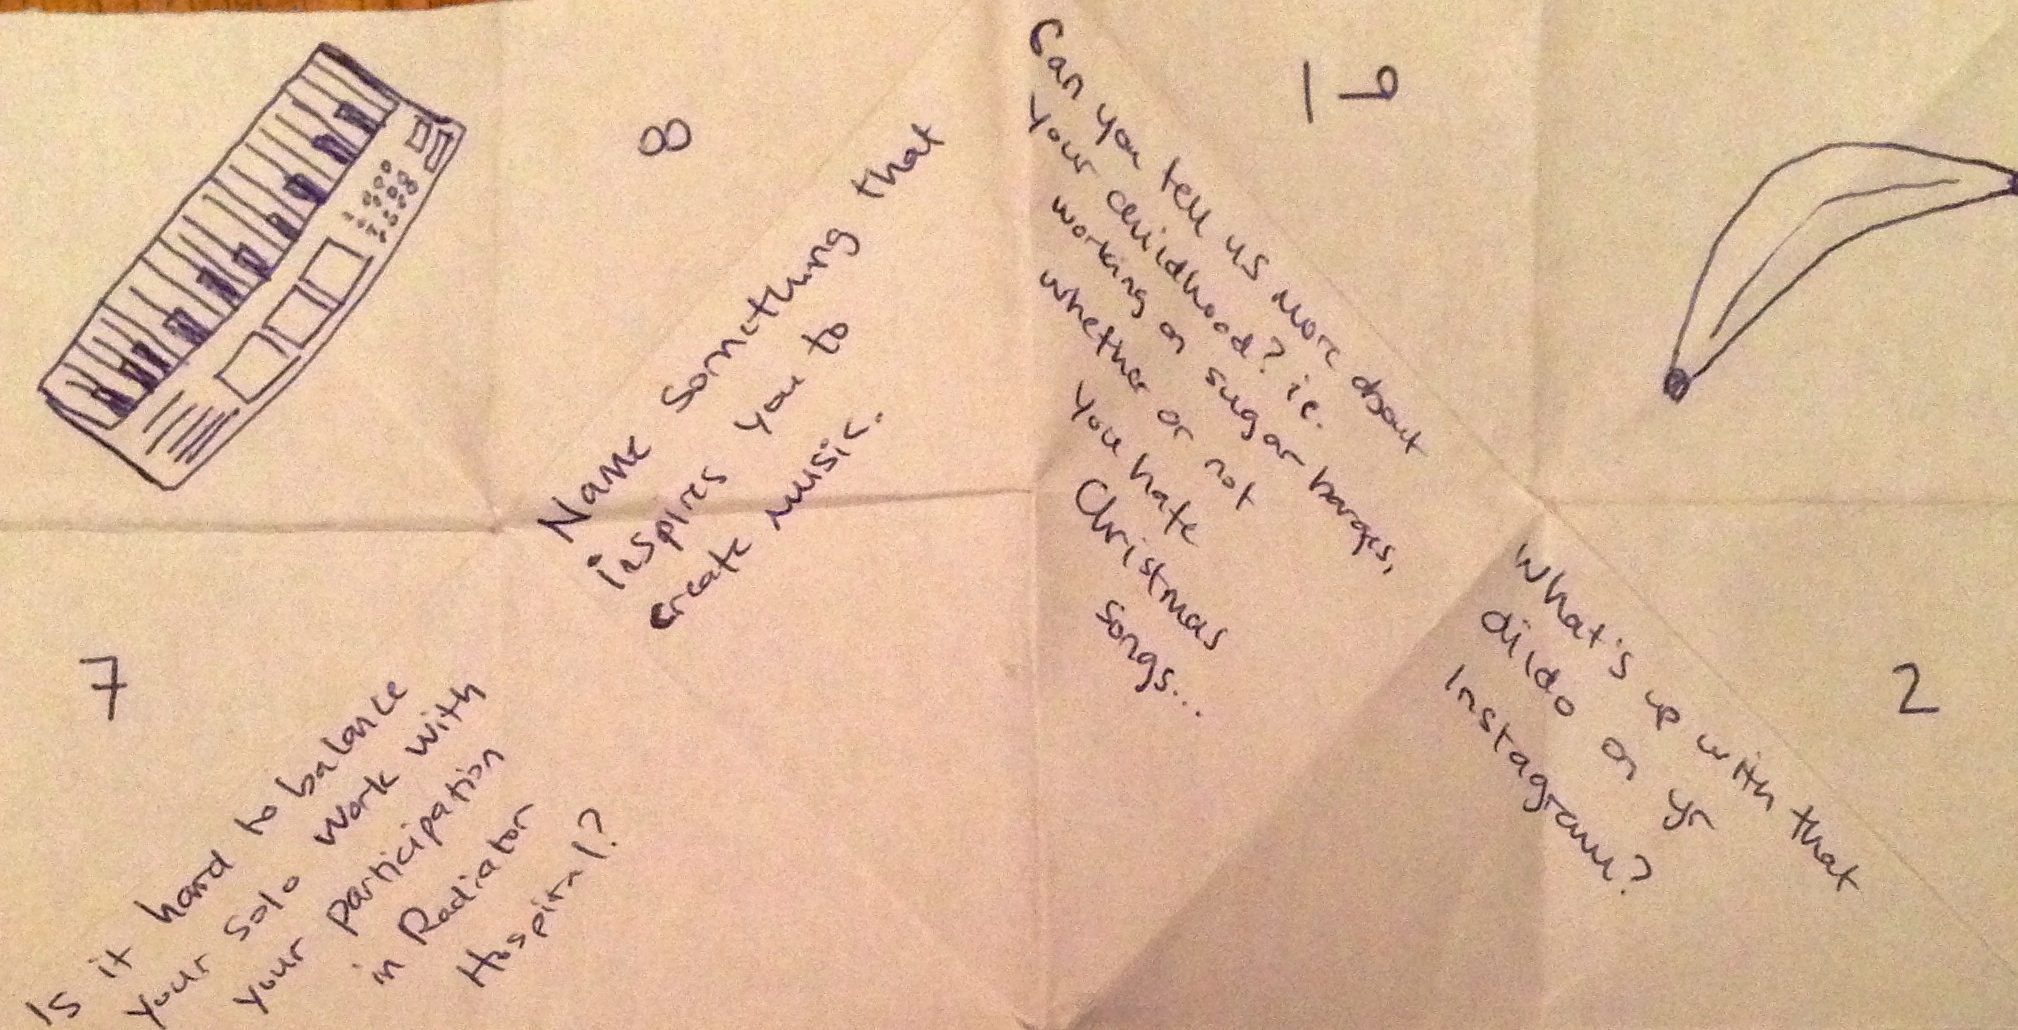 8
Name something that
inspires you to
create music.
19
Can you tell us more about
your childhood? ie.
working on sugar barges,
whether or not
you hate
Christmas
songs...
7
Is it hard to balance
your solo work with
your participation
in Radiator
Hospital?
2
What's up with that
dildo on yr
Instagram?